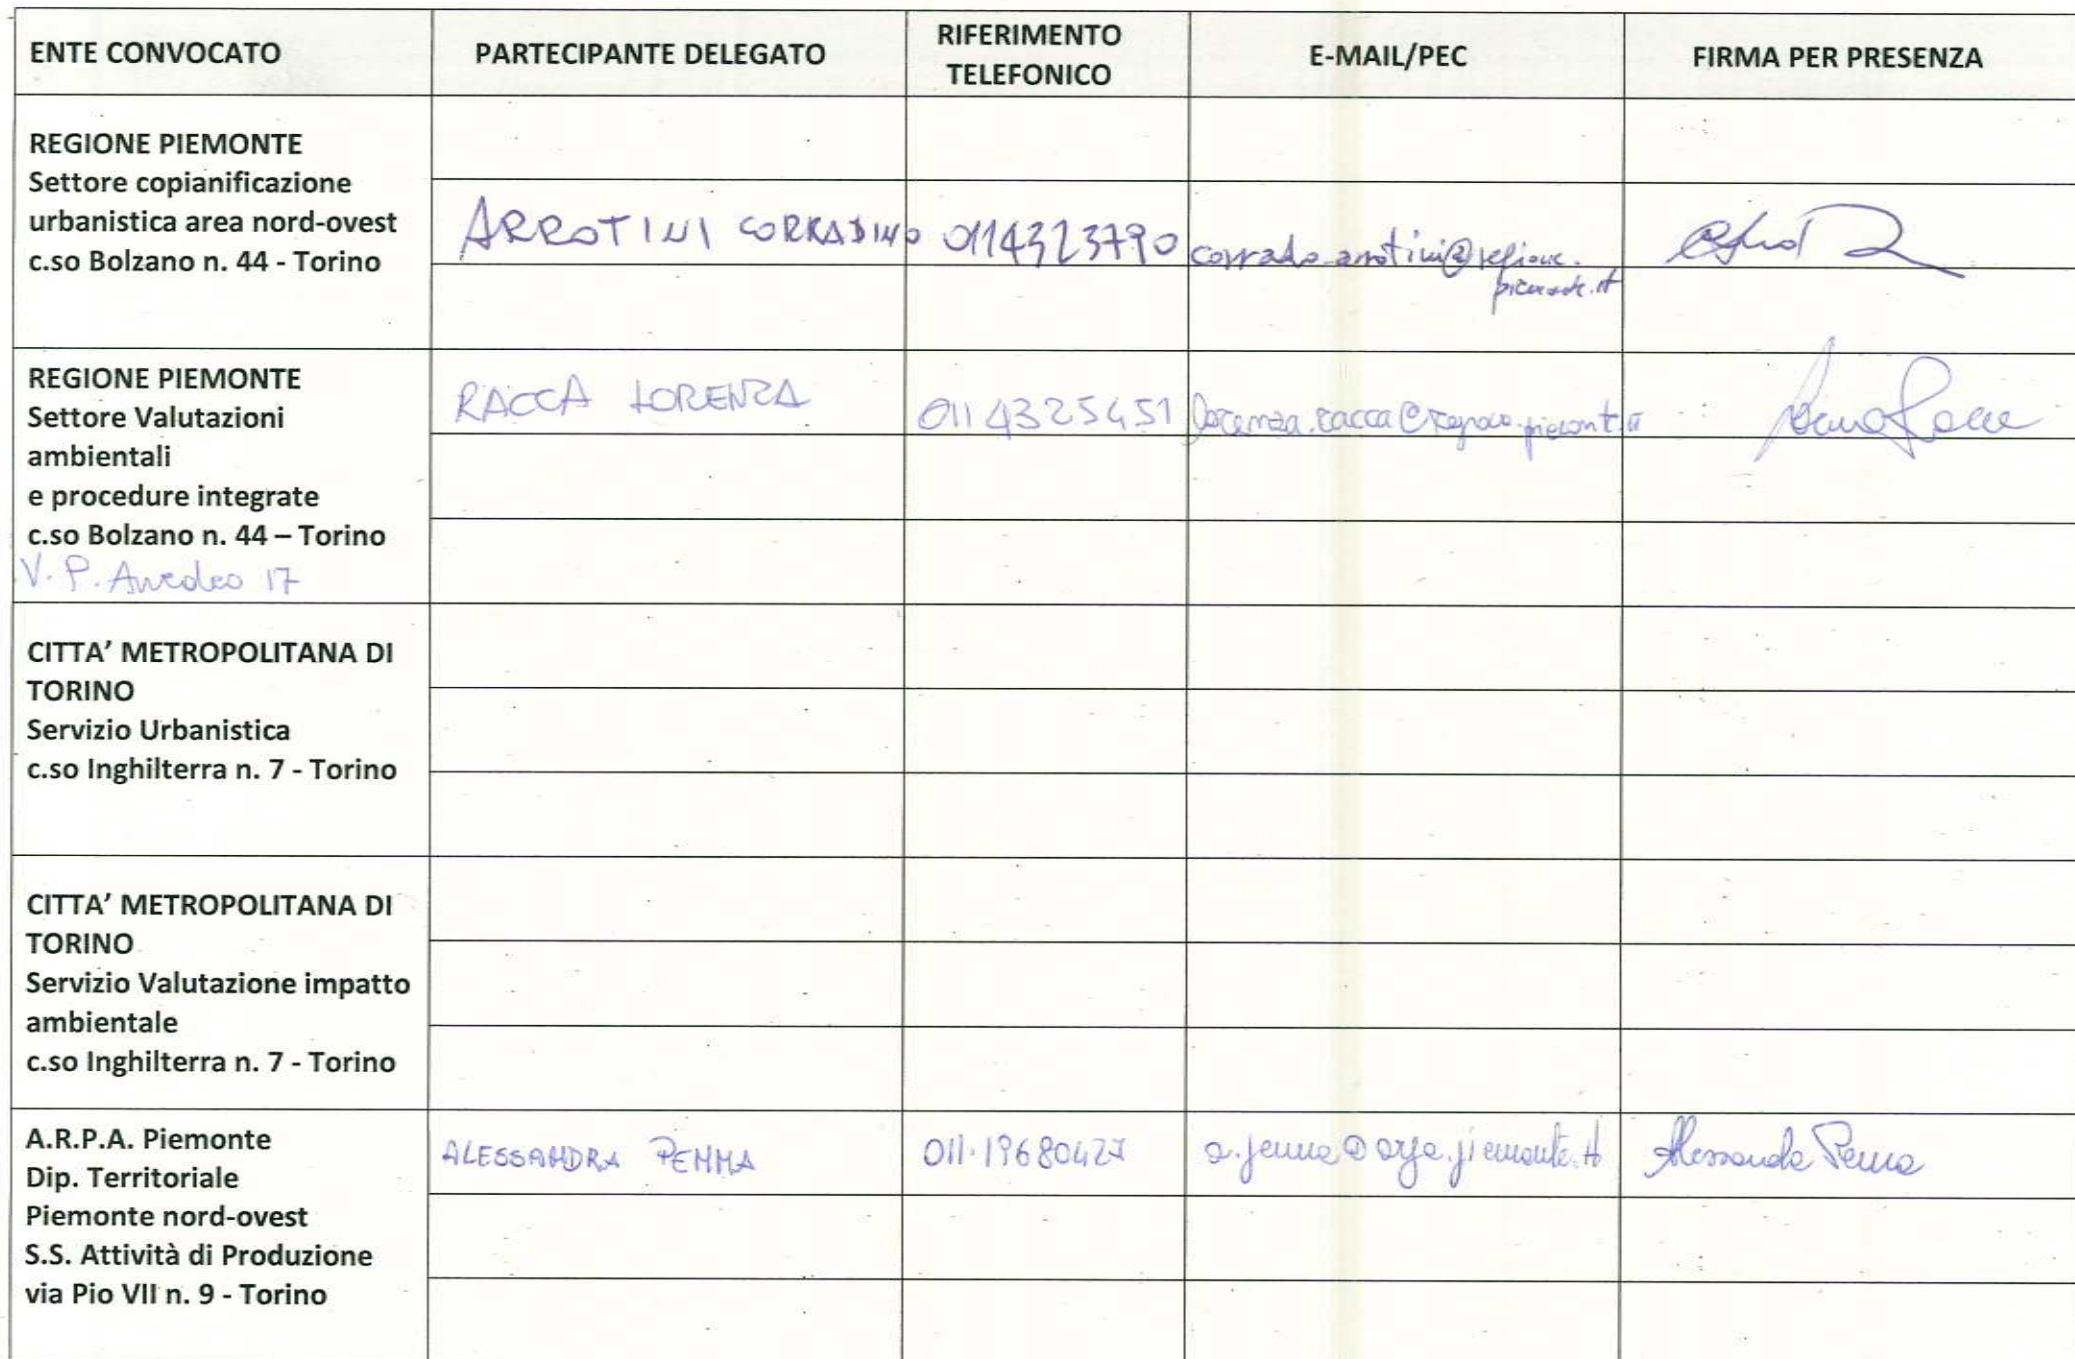 ENTE CONVOCATO
PARTECIPANTE DELEGATO
RIFERIMENTO
TELEFONICO
E-MAIL/PEC
FIRMA PER PRESENZA
REGIONE PIEMONTE
Settore copianificazione
urbanistica area nord-ovest
c.so Bolzano n. 44 - Torino
ARROTINI CORRADINO
0114323790
corrado.arrotini@regione.
piemonte.it
REGIONE PIEMONTE
Settore Valutazioni
ambientali
e procedure integrate
c.so Bolzano n. 44 – Torino
V. P. Amedeo 17
RACCA LORENZA
0114325451
lorenza.racca@regione.piemonte.it
CITTA' METROPOLITANA DI
TORINO
Servizio Urbanistica
c.so Inghilterra n. 7 - Torino
CITTA' METROPOLITANA DI
TORINO
Servizio Valutazione impatto
ambientale
c.so Inghilterra n. 7 - Torino
A.R.P.A. Piemonte
Dip. Territoriale
Piemonte nord-ovest
S.S. Attività di Produzione
via Pio VII n. 9 - Torino
ALESSANDRA PENNA
011.19680427
a.penna@arpa.piemonte.it
Alessandra Penna